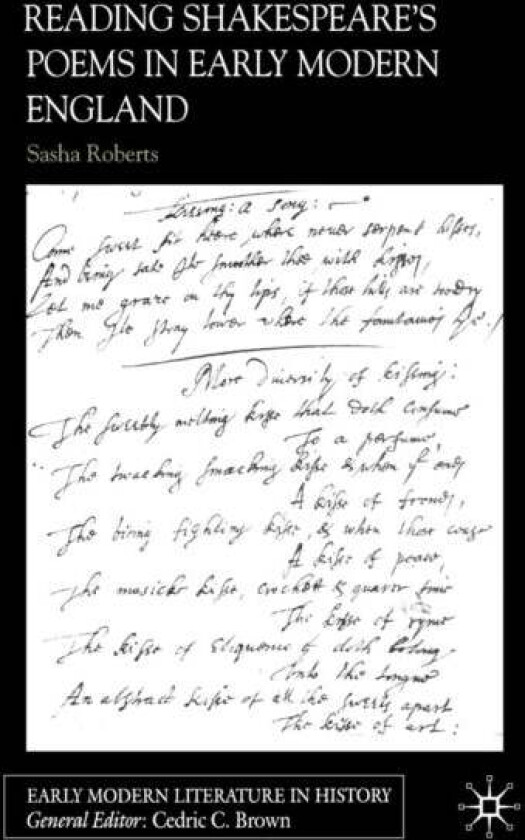 READING SHAKESPEARE'S
POEMS IN EARLY MODERN
ENGLAND
Sasha Roberts
Kissing: a song:
Come sweet sit heere where never serpent hisses,
And being sate Ile smother thee with kisses,
Let me graze on thy lips, if those hills are
Then Ile stray lower where the fountaines lye.
More diversity of kissing:
The sweetly melting kisse that doth consume
To a perfume,
The smacking kisse is when
A kisse of frends,
The fighting kisse, is when those cease
A kisse of peace,
The musicke kisse, crochett & quaver time
The kisse of ryme
The kisse of Eloquence doth belong
Unto the tongue
An abstract kisse of all the sweets apart
The kisse of art:
EARLY MODERN LITERATURE IN HISTORY
General Editor: Cedric C. Brown